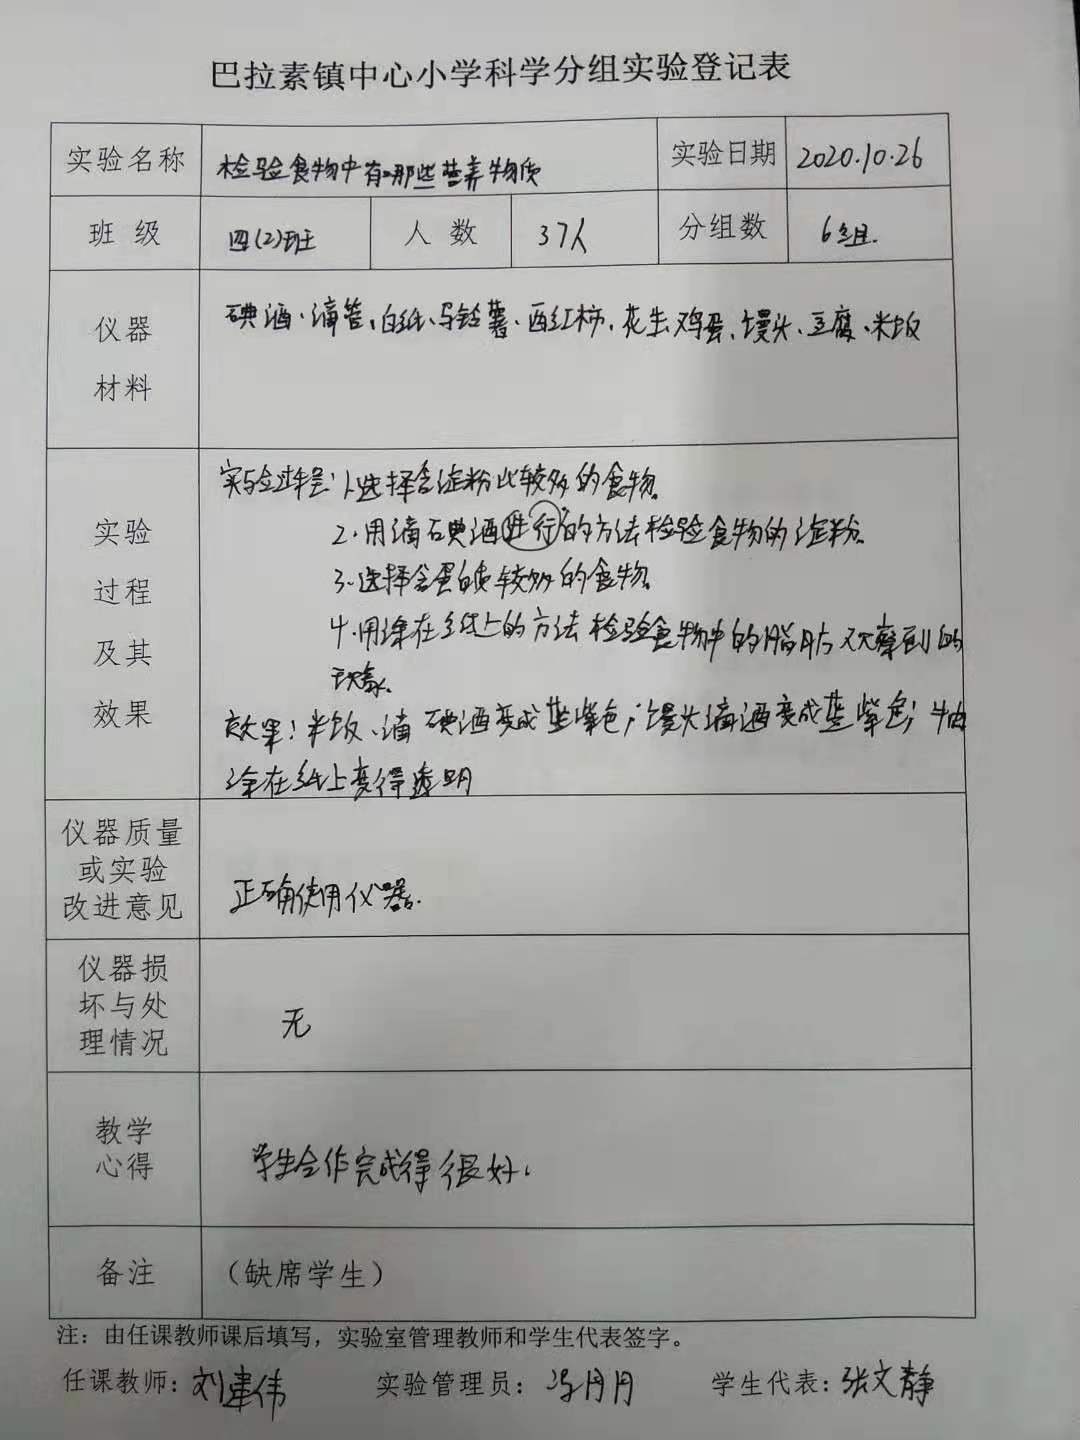 巴拉素镇中心小学科学分组实验登记表
实验名称 检验食物中有哪些营养物质 实验日期 2020.10.26
班 级 四(2)班 人 数 37人 分组数 6组.
仪器
材料
碘酒、滴管、白纸、马铃薯、西红柿、花生、鸡蛋、馒头、豆腐、米饭
实验
过程
及其
效果
实验过程:1、选择含淀粉比较多的食物。
2、用滴碘酒进行的方法检验食物的淀粉。
3、选择含蛋白质较多的食物。
4、用涂在纸上的方法检验食物中的脂肪观察到的
现象。
效果:米饭、滴碘酒变成蓝紫色;馒头滴酒变成蓝紫色;牛肉
涂在纸上变得透明
仪器质量
或实验
改进意见
正确使用仪器.
仪器损
坏与处
理情况
无
教学
心得
学生合作完成得很好.
备注 (缺席学生)
注:由任课教师课后填写,实验室管理教师和学生代表签字。
任课教师:刘建伟 实验管理员:冯月月 学生代表:张文静